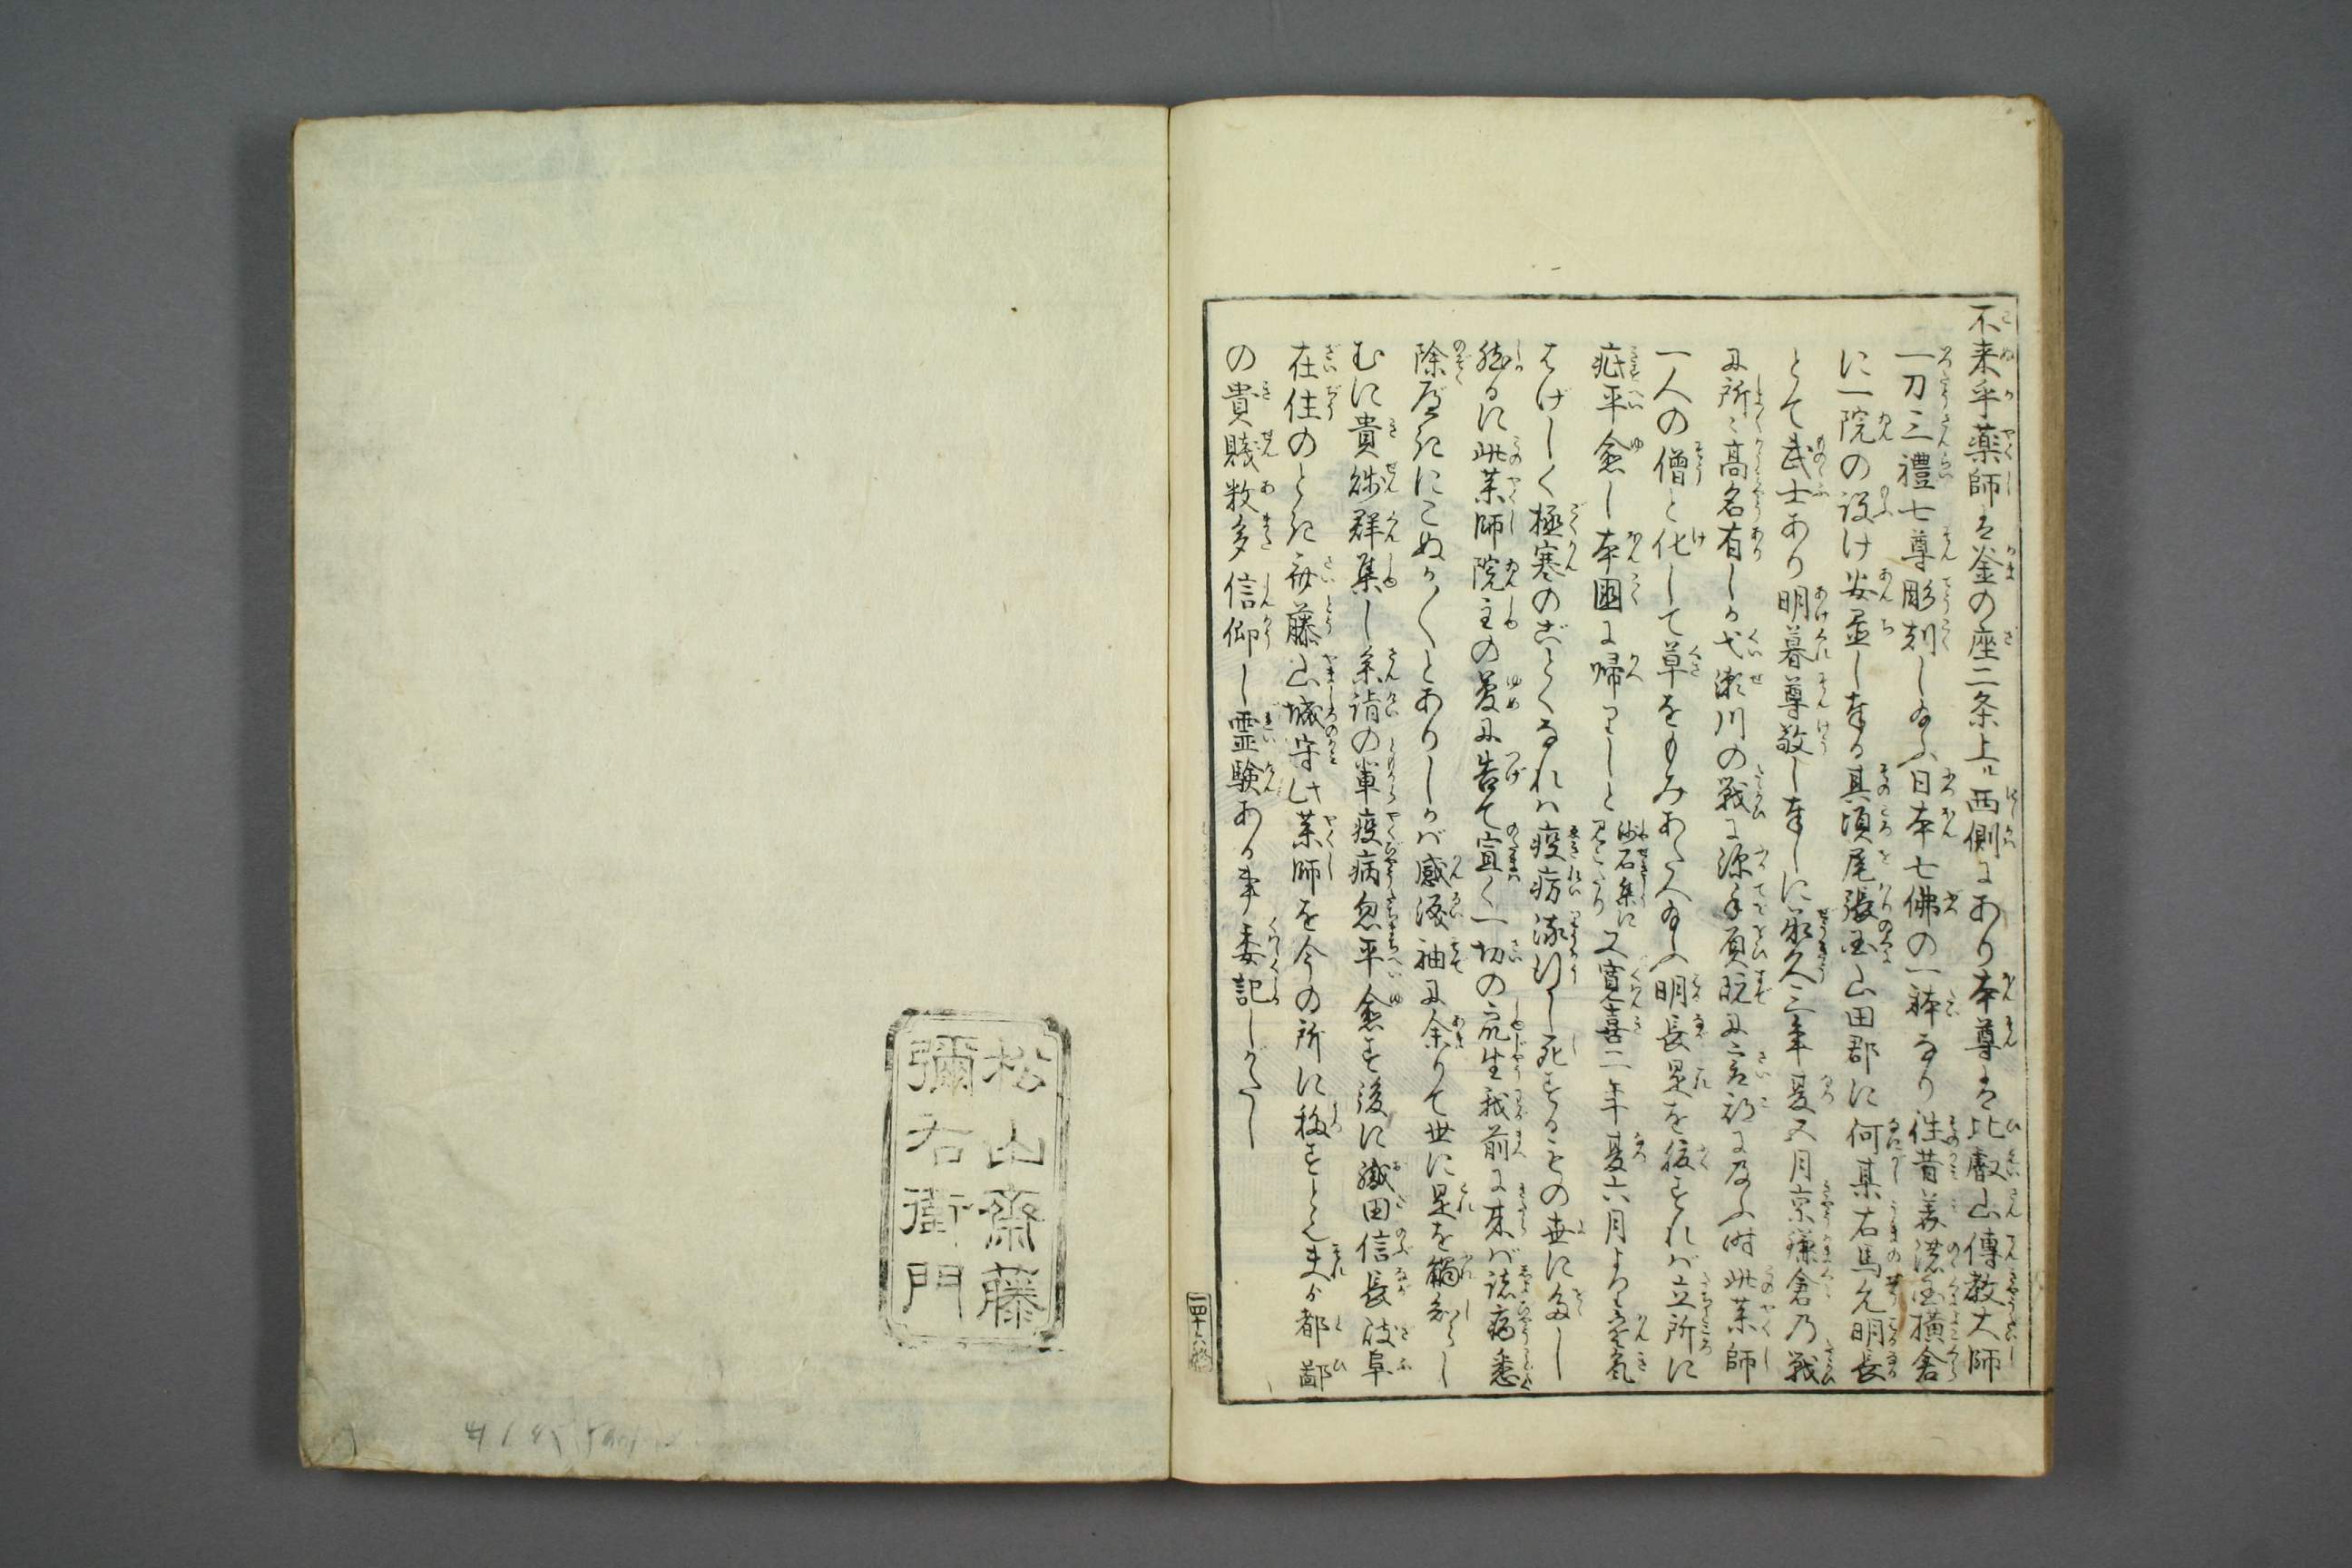 不来乎薬師は釜の座二条上ル西側にあり本尊は比叡山傳教大師
一刀三禮七尊彫刻し給ふ日本七佛の一躰なり往昔美濃国横倉
に一院の設け安置し奉る其頃尾張国山田郡に何某右馬允明長
とて武士あり明暮尊敬し奉りしに承久三年夏五月京鎌倉乃戦
に所々高名有しが弋瀬川の戦に深手負既に言頃に及ふ時此薬師
一人の僧と化して草をもみあたへ給ふ明長是を服すれば立所に
疵平愈し本國に帰りしと沙石集に見へたり又寛喜二年夏六月より寒気
はげしく極寒のごとくなれハ疫癘流行し死するもの世に多し
然るに此薬師院主の夢に告て宣く一切の衆生我前に来ば諸病悉
除べきにこぬか〱とありしかば感涙袖に余りて世に是を觸知らし
むに貴賎群集し参詣の輩疫病忽平愈す後に織田信長岐阜
在住のとき斎藤山城守此薬師を今の所に移すとぞ夫より都鄙
の貴賎数多信仰し霊験ある事委記しがたし
二四十六終
松山齋藤
彌右衛門